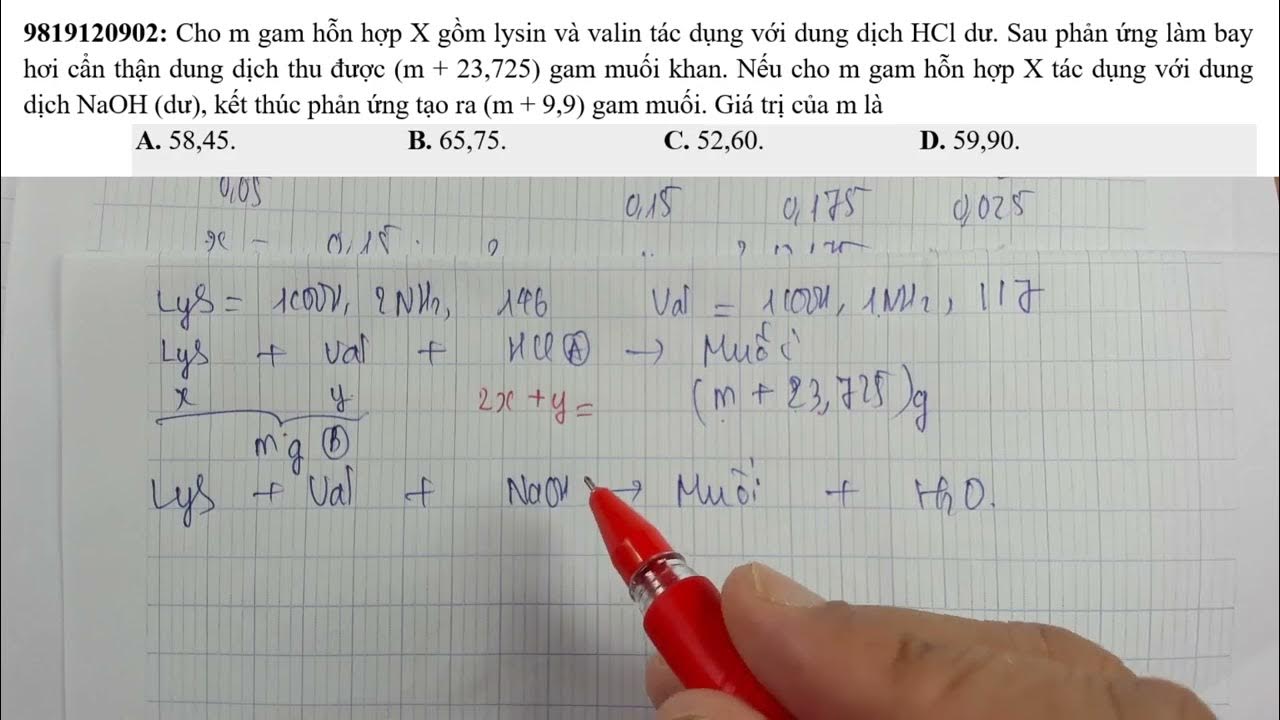 9819120902: Cho m gam hỗn hợp X gồm lysin và valin tác dụng với dung dịch HCl dư. Sau phản ứng làm bay
hơi cẩn thận dung dịch thu được (m + 23,725) gam muối khan. Nếu cho m gam hỗn hợp X tác dụng với dung
dịch NaOH (dư), kết thúc phản ứng tạo ra (m + 9,9) gam muối. Giá trị của m là
A. 58,45. B. 65,75. C. 52,60. D. 59,90.
0,05 0,15 0,175 0,025
x = 0,15
Lys = 1COOH, 2NH2, 146 Val = 1COOH, 1NH2, 117
Lys + Val + HCl Ⓐ → Muối
x y 2x + y = (m + 23,725)g
mg Ⓑ
Lys + Val + NaOH → Muối + H2O.